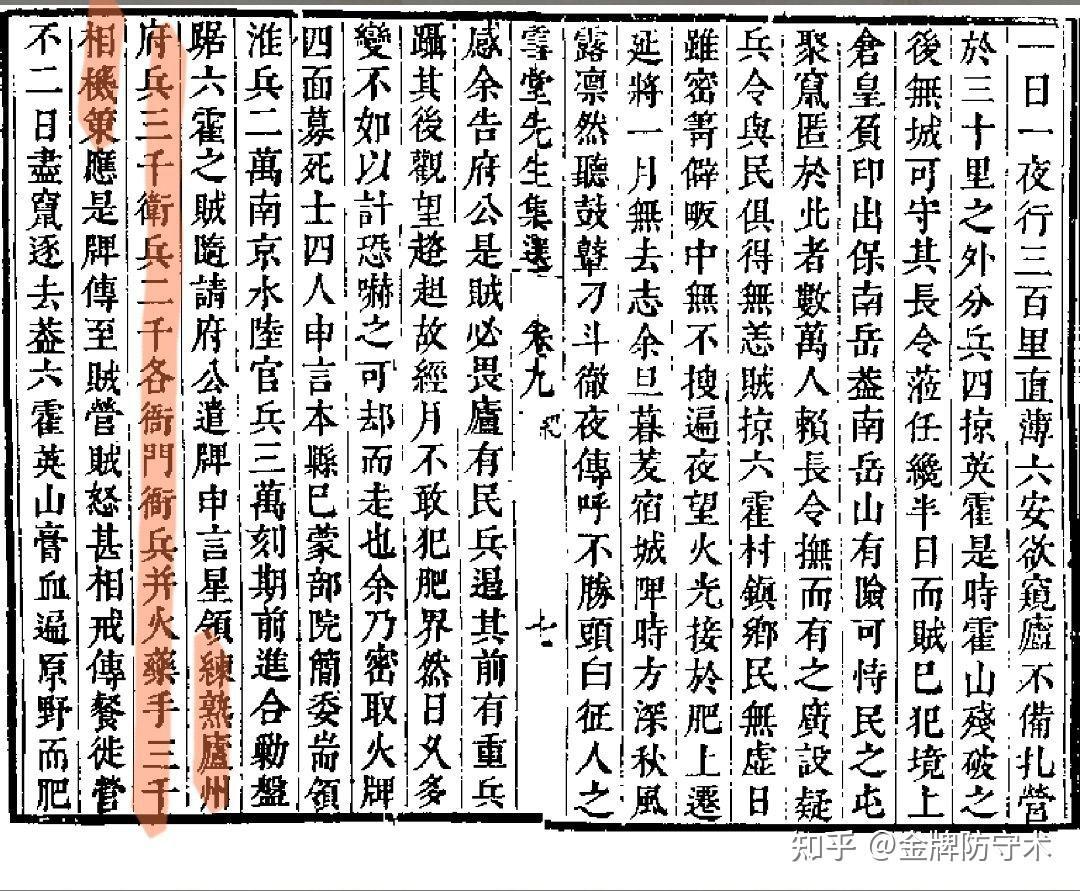 一日一夜行三百里直薄六安欲窺廬不備扎營
於三十里之外分兵四掠英霍是時霍山殘破之
後無城可守其長令蒞任纔半日而賊已犯境上
倉皇負印出保南岳葢南岳山有險可恃民之屯
聚竄匿於此者數萬人賴長令撫而有之廣設疑
兵令與民俱得無恙賊掠六霍村鎮鄉民無虛日
雖密箐僻畈中無不搜遍夜望火光接於肥上遷
延將一月無去志余旦暮茇宿城陴時方深秋風
露凛然聽鼓鼙刁斗徹夜傳呼不勝頭白征人之
雪堂先生集選 卷九 七
感余告府公是賊必畏廬有民兵遏其前有重兵
躡其後觀望趑趄故經月不敢犯肥界然日乆多
變不如以計恐嚇之可却而走也余乃密取火牌
四面募死士四人申言本縣已蒙部院簡委耑領
淮兵二萬南京水陸官兵三萬刻期前進合勦盤
踞六霍之賊隨請府公遣牌申言星領練熟廬州
府兵三千衛兵二千各衙門衙兵并火藥手三千
相機策應是牌傳至賊營賊怒甚相戒傳餐徙營
不二日盡竄逐去葢六霍英山膏血遍原野而肥
知乎 @金牌防守术